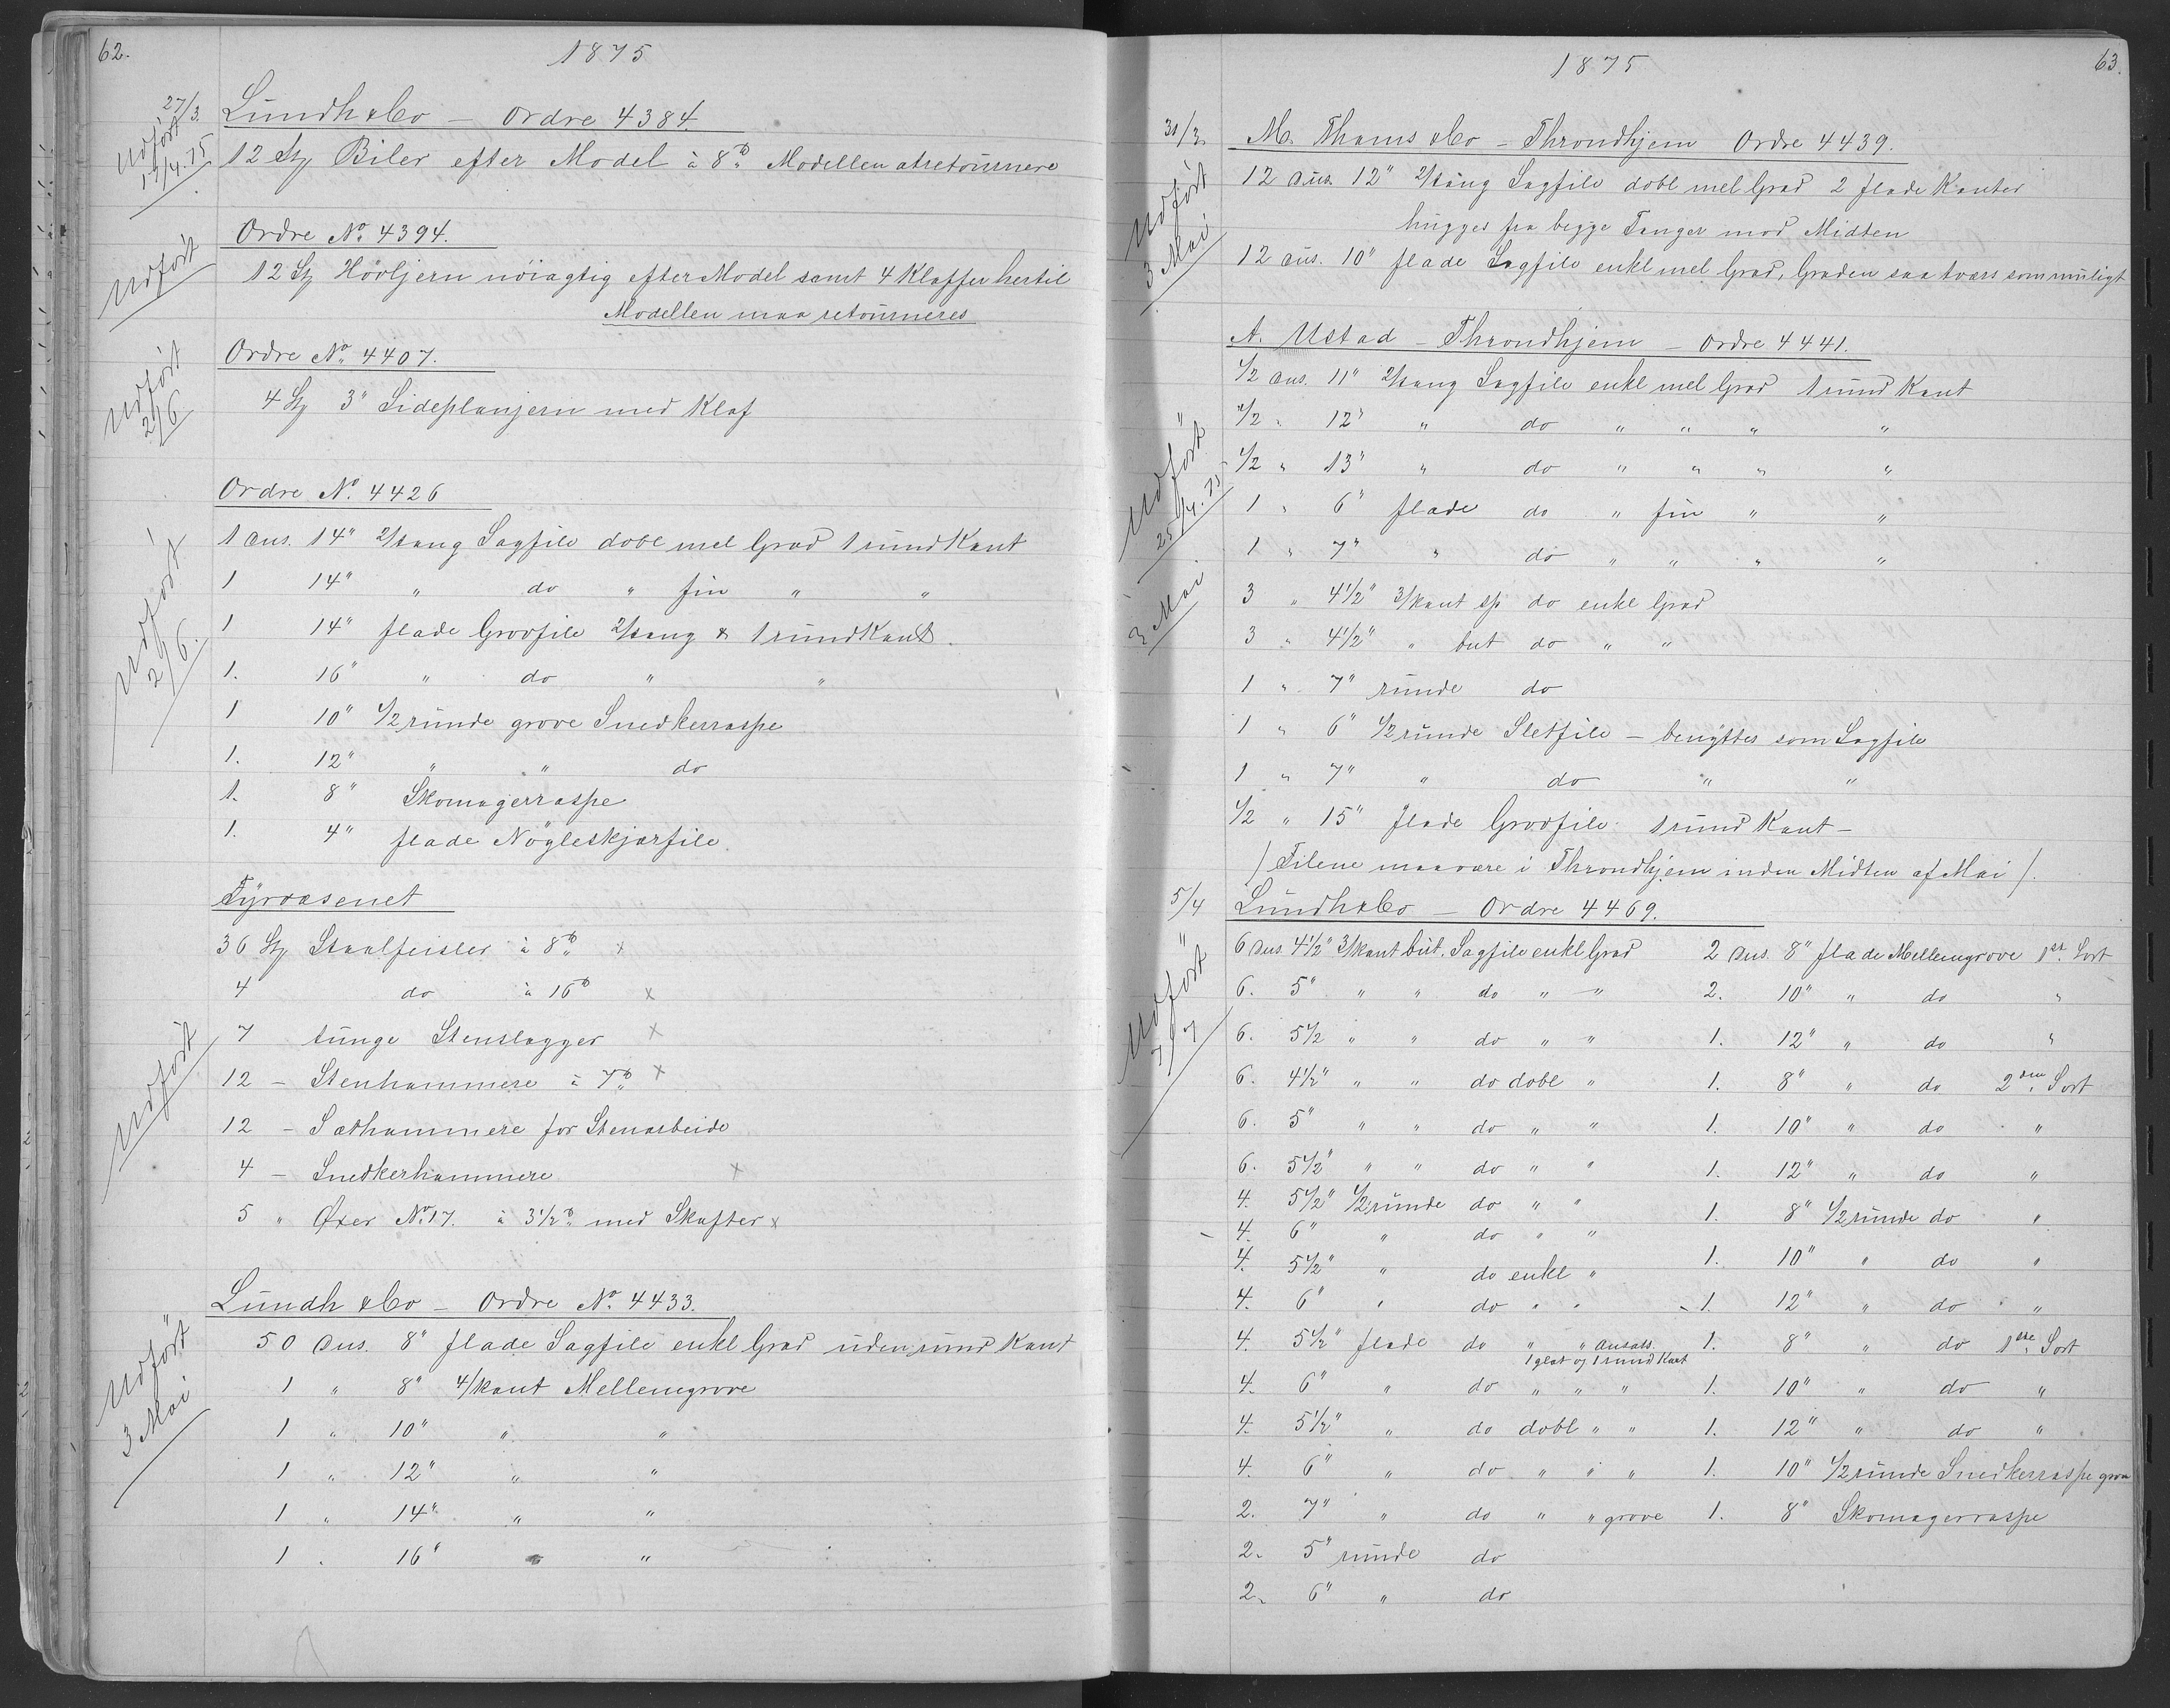 62.
1875
27/3.
Lundh & Co — Ordre 4384.
Udført 13/4.75
12 St Biler efter Model à 8 ℔ Modellen at retournere
Ordre No 4394.
Udført
12 St Høvljern nøiagtig efter Model samt 4 Klaffer hertil
Modellen maa retourneres
Ordre No. 4407.
Udført 2/6
4 St 3" Sideplanjern med Klaf
Ordre No. 4426
Udført 2/6.
1 Dus. 14" 2/tang Sagfile dobl mel Grad 1 rund Kant
1 14" " do " fin " "
1 14" flade Grovfile 2/tang & 1 rund Kant.
1. 16" " do " "
1 10" 1/2 runde grove Snedkerraspe
1. 12" " " do
1. 8" Skomagerraspe
1. 4" flade Nøgleskjærfile
Fyrvæsenet
Udført
36 St Staalfeisler à 8 ℔ x
4 do à 16 ℔ x
7 tunge Stenslagger x
12 — Stenhammere à 7 ℔ x
12 — Sæthammere for Stenarbeide
4 — Snedkerhammere x
5 " Øxer No 17. à 3 1/2 ℔ med Skafter x
Lundh & Co — Ordre No. 4433.
Udført 3 Mai
50 Dus. 8" flade Sagfile enkl Grad uden rund Kant
1 " 8" 4/kant Mellemgrove
1 " 10" " "
1 " 12" " "
1 " 14" " "
1 " 16" " "
1875
63.
31/3.
M. Thams & Co — Throndhjem Ordre 4439.
Udført 3 Mai
12 Dus. 12" 2/tang Sagfile dobl mel Grad 2 flade Kanter
hugges fra begge Tanger mod Midten
12 Dus. 10" flade Sagfile enkl mel Grad, Graden saa tvers som muligt
A. Ustad — Throndhjem — Ordre 4441.
1/2 Dus. 11" 2/tang Sagfile enkl mel Grad 1 rund Kant
Udført 25/4.75
3 Mai
1/2 " 12" " do " " " "
1/2 " 13" " do " " " "
1 " 6" flade do " fin " "
1 " 7" " do " " " "
3 " 4 1/2" 3/kant sp do enkl Grad
3 " 4 1/2" " but do " "
1 " 7" runde do
1 " 6" 1/2 runde Sletfile — benyttes som Sagfile
1 " 7" " do " "
1/2 " 15" flade Grovfile 1 rund Kant —
/ Filene maa være i Throndhjem inden Midten af Mai /.
5/4
Lundh & Co — Ordre 4469.
Udført 7/7
6 Dus. 4 1/2" 3/kant but. Sagfile enkl Grad 2 Dus. 8" flade Mellemgrove 1ste Sort
6. 5" " " do " " 2. 10" " do "
6. 5 1/2 " " do " " 1. 12" " do "
6. 4 1/2" " " do dobl " 1. 8" " do 2den Sort
6. 5" " " do " " 1. 10" " do "
6. 5 1/2" " " do " " 1. 12" " do "
4. 5 1/2" 1/2 runde do " " 1. 8" 1/2 runde do "
4. 6" " do " "
4. 5 1/2" " do enkl " 1. 10" " do "
4. 6" " do " " 1. 12" " do "
4. 5 1/2" flade do " " Ansats. 1 glat og 1 rund Kant 1. 8" " do 1ste Sort
4. 6" " do " " " 1. 10" " do "
4. 5 1/2" " do dobl " " 1. 12" " do "
4. 6" " do " " " 1. 10" 1/2 runde Snedkerraspe grov
2. 7" " do " " grove 1. 8" Skomagerraspe
2. 5" runde do
2. 6" " do